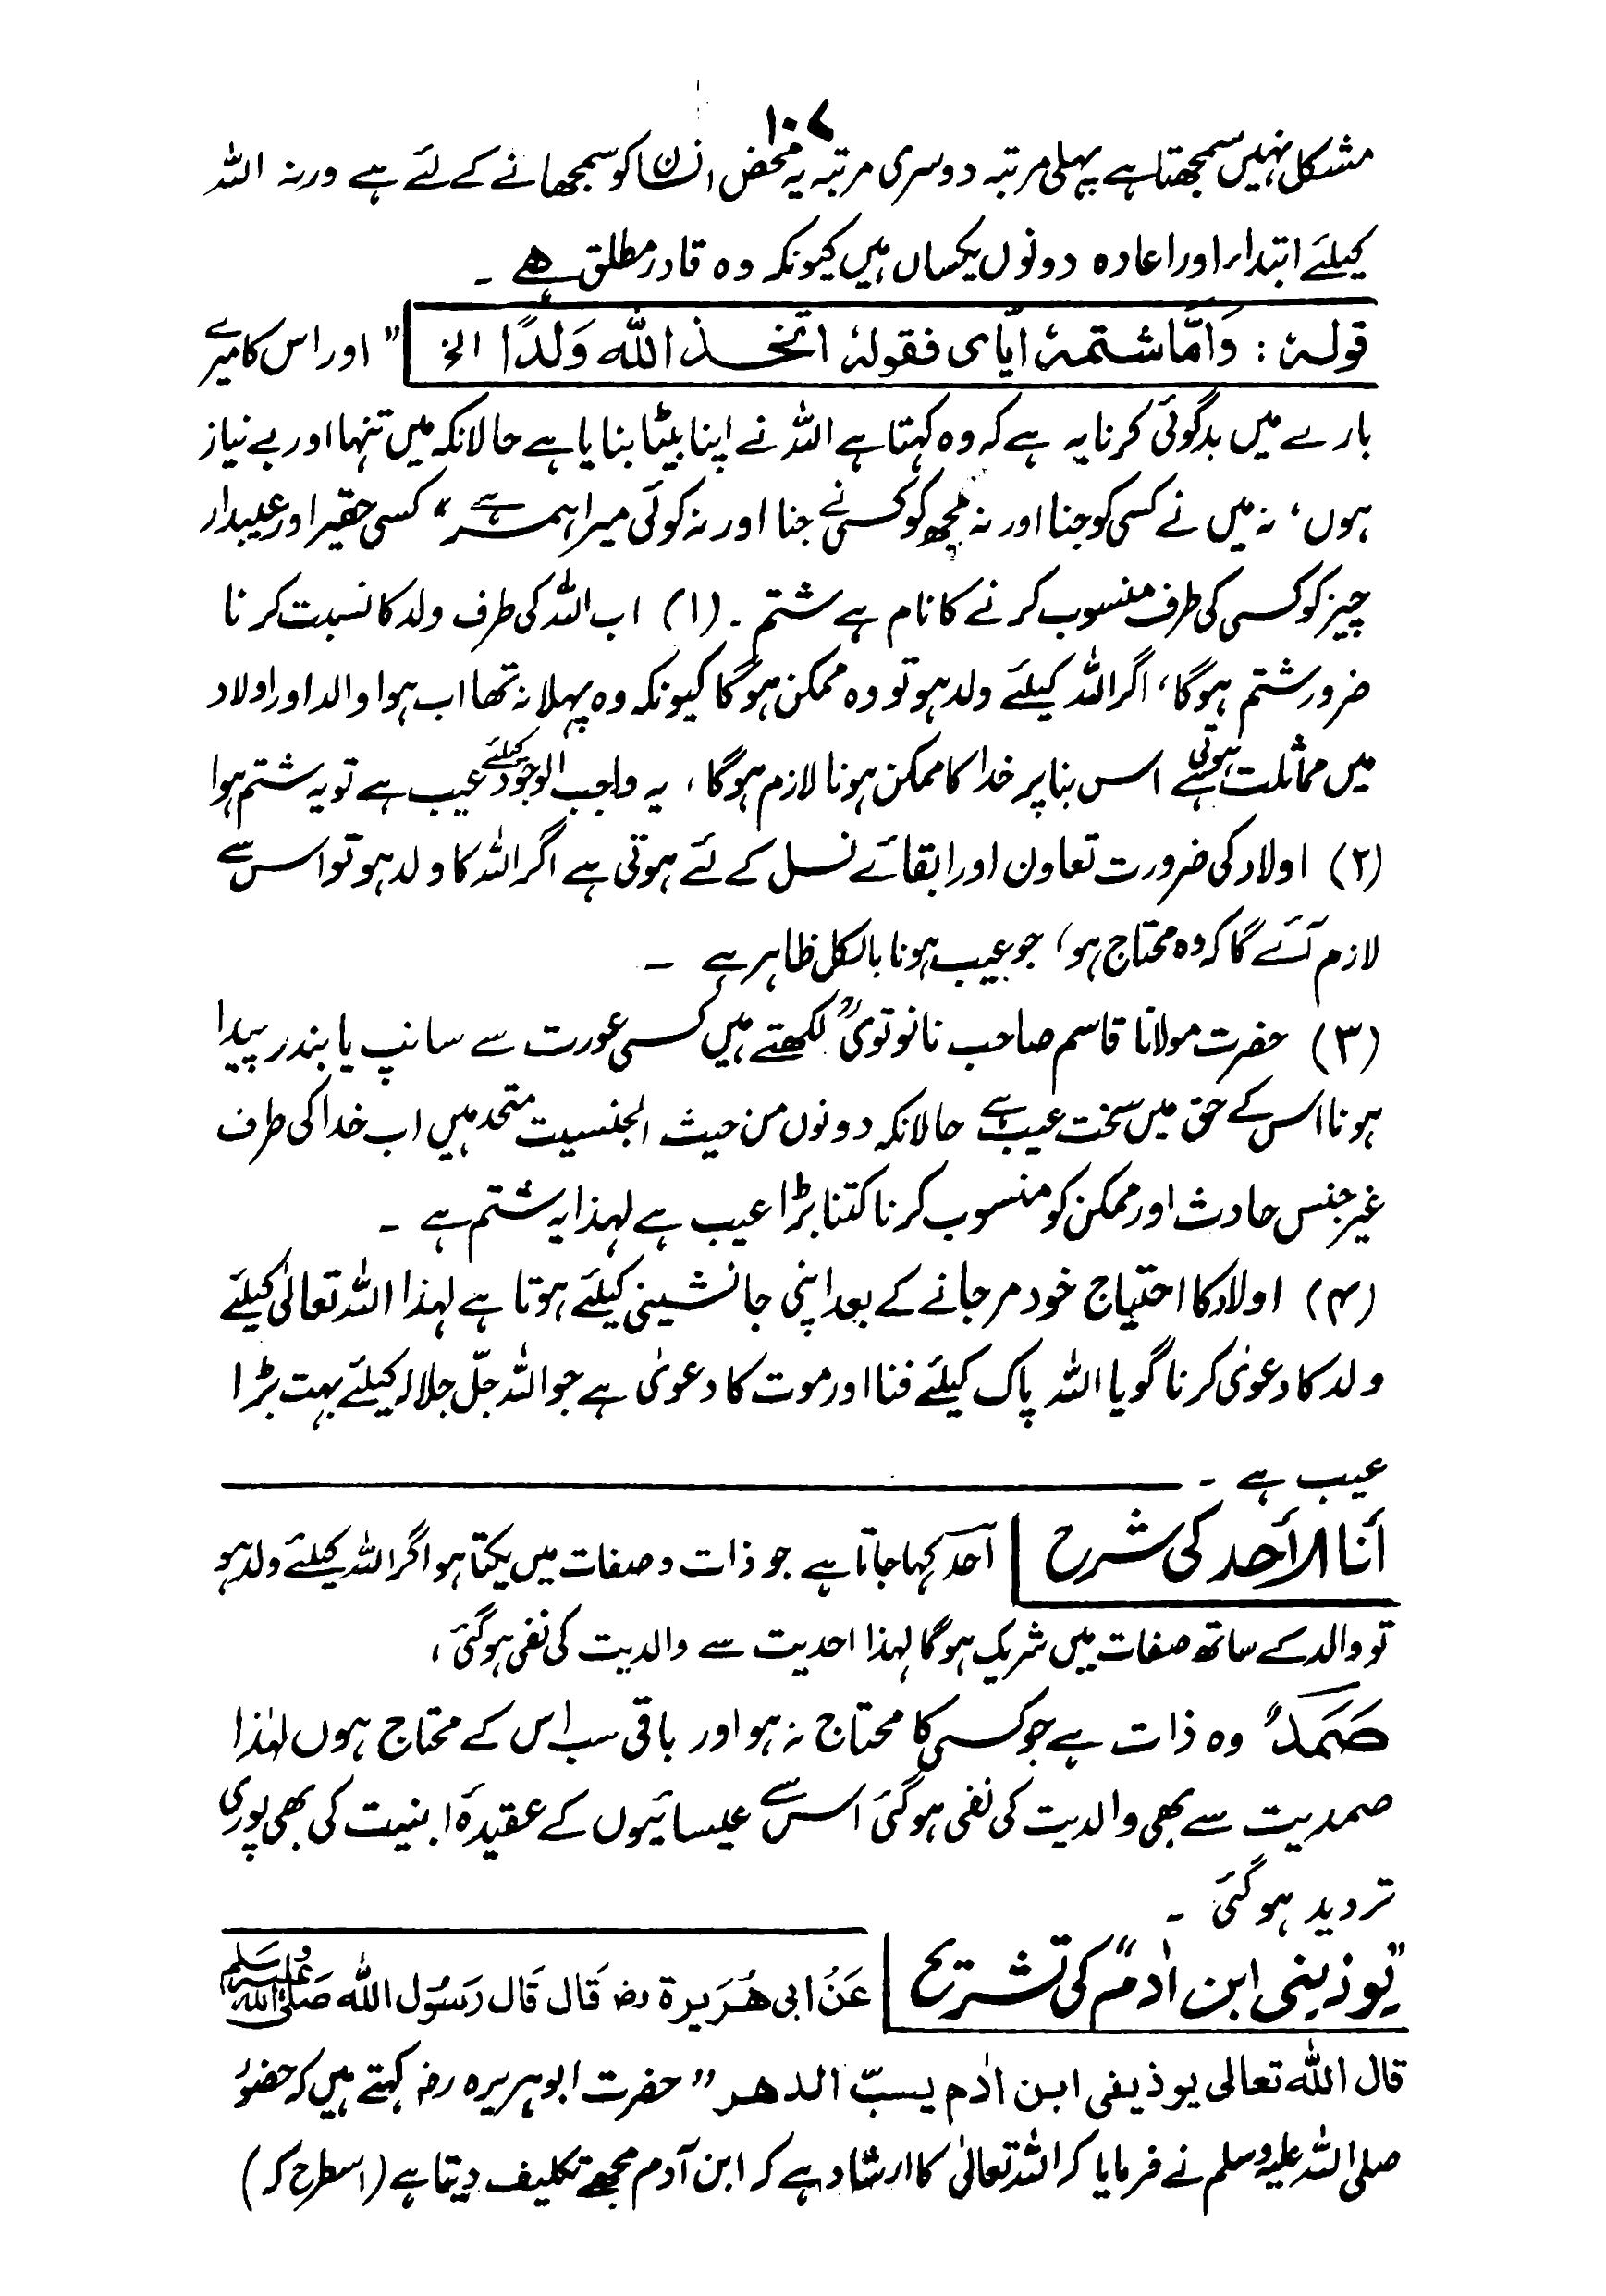 ۱۰۷
مشکل نہیں سمجھتا ہے پہلی مرتبہ دوسری مرتبہ یہ محض انسان کو سمجھانے کے لئے ہے ورنہ اللہ
کیلئے ابتداء اور اعادہ دونوں یکساں ہیں کیونکہ وہ قادر مطلق ہے ۔
قولہٗ : وَاَمَّا شتمہٗ ایّای فقولہٗ اتخذ اللہ وَلدًا الخ " اور اس کا میرے
بارے میں بدگوئی کرنا یہ ہے کہ وہ کہتا ہے اللہ نے اپنا بیٹا بنایا ہے حالانکہ میں تنہا اور بے نیاز
ہوں، نہ میں نے کسی کو جنا اور نہ مجھ کو کسی نے جنا اور نہ کوئی میرا ہمسر ہے " کسی حقیر اور عیبدار
چیز کو کسی کی طرف منسوب کرنے کا نام ہے شتم ۔ (۱) اب اللہ کی طرف ولد کا نسبت کرنا
ضرور شتم ہوگا، اگر اللہ کیلئے ولد ہو تو وہ ممکن ہوگا کیونکہ وہ پہلا نہ تھا اب ہوا والد اور اولاد
میں مماثلت ہوتی ہے اس بنا پر خدا کا ممکن ہونا لازم ہوگا، یہ واجب الوجود کیلئے عیب ہے تو یہ شتم ہوا
(۲) اولاد کی ضرورت تعاون اور ابقائے نسل کے لئے ہوتی ہے اگر اللہ کا ولد ہو تو اس سے
لازم آئے گا کہ وہ محتاج ہو، جو عیب ہونا بالکل ظاہر ہے ۔
(۳) حضرت مولانا قاسم صاحب نانوتویؒ لکھتے ہیں کسی عورت سے سانپ یا بندر پیدا
ہونا اس کے حق میں سخت عیب ہے حالانکہ دونوں من حیث الجنسیت متحد ہیں اب خدا کی طرف
غیر جنس حادث اور ممکن کو منسوب کرنا کتنا بڑا عیب ہے لہذا یہ شتم ہے ۔
(۴) اولاد کا احتیاج خود مرجانے کے بعد اپنی جانشینی کیلئے ہوتا ہے لہذا اللہ تعالیٰ کیلئے
ولد کا دعویٰ کرنا گویا اللہ پاک کیلئے فنا اور موت کا دعویٰ ہے جو اللہ جلّ جلالہ کیلئے بہت بڑا
عیب ہے ۔
أنا الأحد کی شرح آحد کہا جاتا ہے جو ذات و صفات میں یکتا ہو اگر اللہ کیلئے ولد ہو
تو والد کے ساتھ صفات میں شریک ہوگا لہذا احدیت سے والدیت کی نفی ہوگئی،
صَمَدٌ وہ ذات ہے جو کسی کا محتاج نہ ہو اور باقی سب اس کے محتاج ہوں لہٰذا
صمدیت سے بھی والدیت کی نفی ہوگئی اس سے عیسائیوں کے عقیدۂ ابنیت کی بھی پوری
تردید ہوگئی ۔
"یوذینی ابن اٰدم" کی تشریح عَنْ ابی ھُرَیرۃ رضؓ قَال قَال رَسُول اللہ صَلَّی اللہ عَلَیْہِ وَسَلَّم
قال اللہ تعالی یوذینی ابن اٰدم یسبّ الدھر " حضرت ابوہریرہ رضؓ کہتے ہیں کہ حضورؐ
صلی اللہ علیہ وسلم نے فرمایا کہ اللہ تعالیٰ کا ارشاد ہے کہ ابن آدم مجھے تکلیف دیتا ہے (اسطرح کہ)